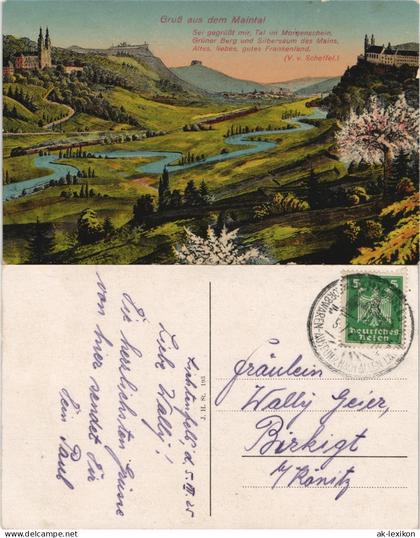 Gruß aus dem Maintal
Sei gegrüßt mir, Tal im Morgenschein,
Grüner Berg und Silbersaum des Mains,
Altes, liebes, gutes Frankenland.
(V. v. Scheffel.)
Lichtenfels d. 5.
Liebe Wally!
Die herzlichsten Grüsse
von hier sendet Dir
Dein Paul
J. H. St. 193
5 5
Deutsches
Reich
KORBWAREN
Fräulein
Wally Geier,
Birkigt
b/ Könitz
© ak-lexikon.de
ak-lexikon